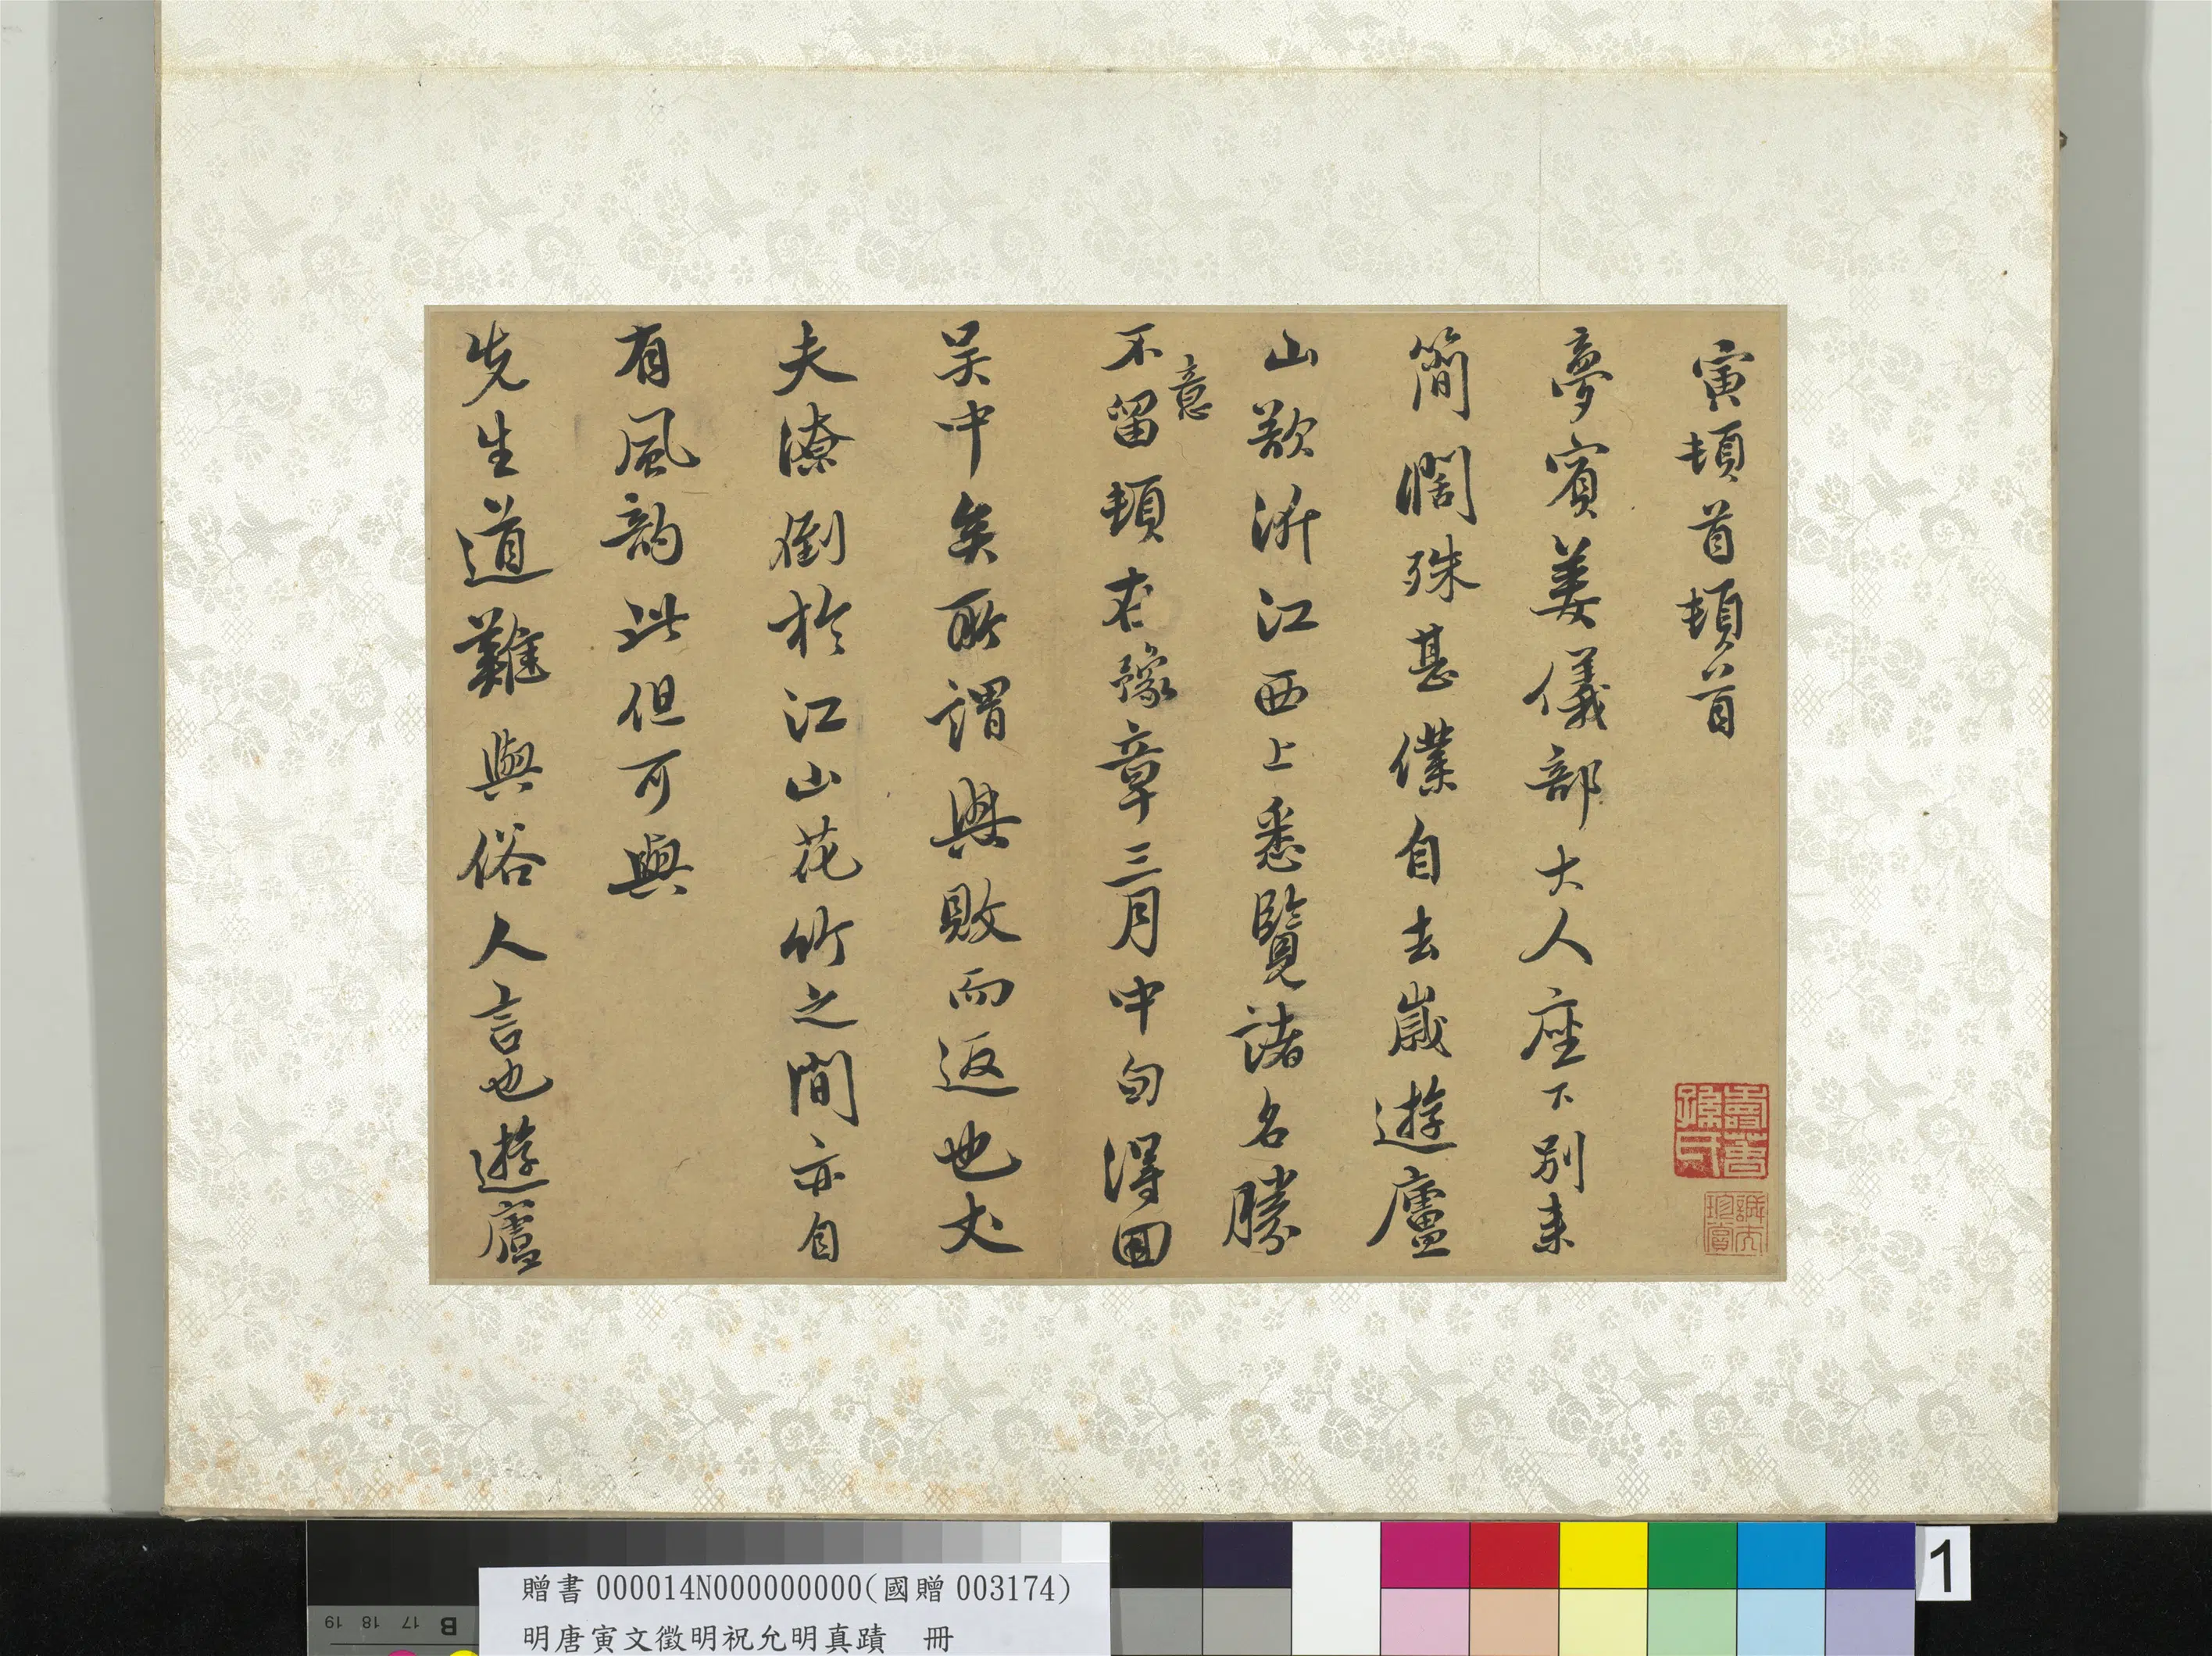 寅頓首頓首
夢賓姜儀部大人座下別來
簡闊殊甚僕自去歲遊廬
山欲泝江西上悉覽諸名勝
意
不留頓在豫章三月中旬得回
吳中矣所謂興敗而返也丈
夫潦倒於江山花竹之間亦自
有風韵此但可與
先生道難與俗人言也遊廬
贈書 000014N000000000(國贈 003174)
明唐寅文徵明祝允明真蹟 冊
1
B 17 18 19